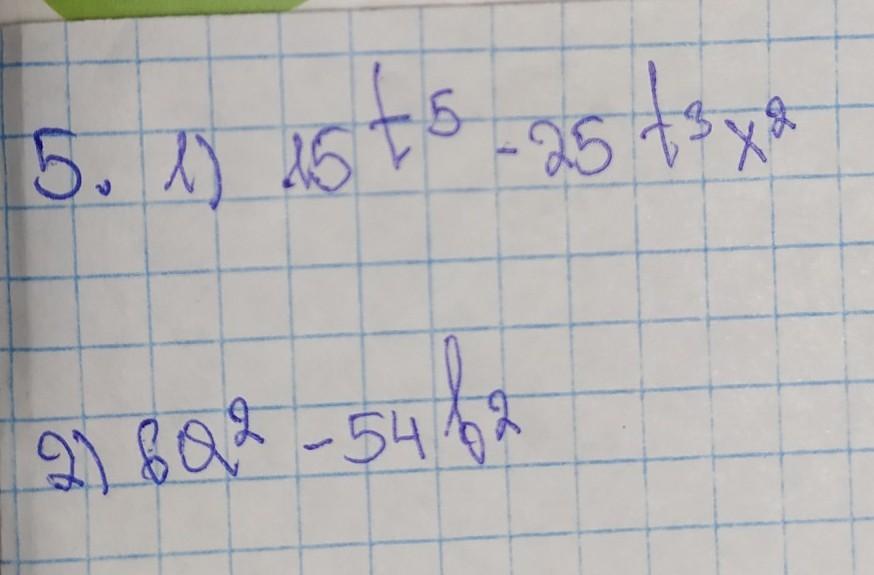 5. 1) 15 t⁵ - 25 t³x²
2) 6a² - 54 b²